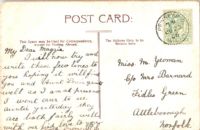 POST CARD.
This Space may be used for Correspondence
The Address Only to be
Written here.
My Dear Maggie
I will now try and
write these few lines to
you hoping it will find
you
well as I am at present
I went over to see
auntie yesterday they
are both fairly well
with
Miss M. Yeoman
C/o Mrs Barnard
Fickles Green
Attleborough
Norfolk